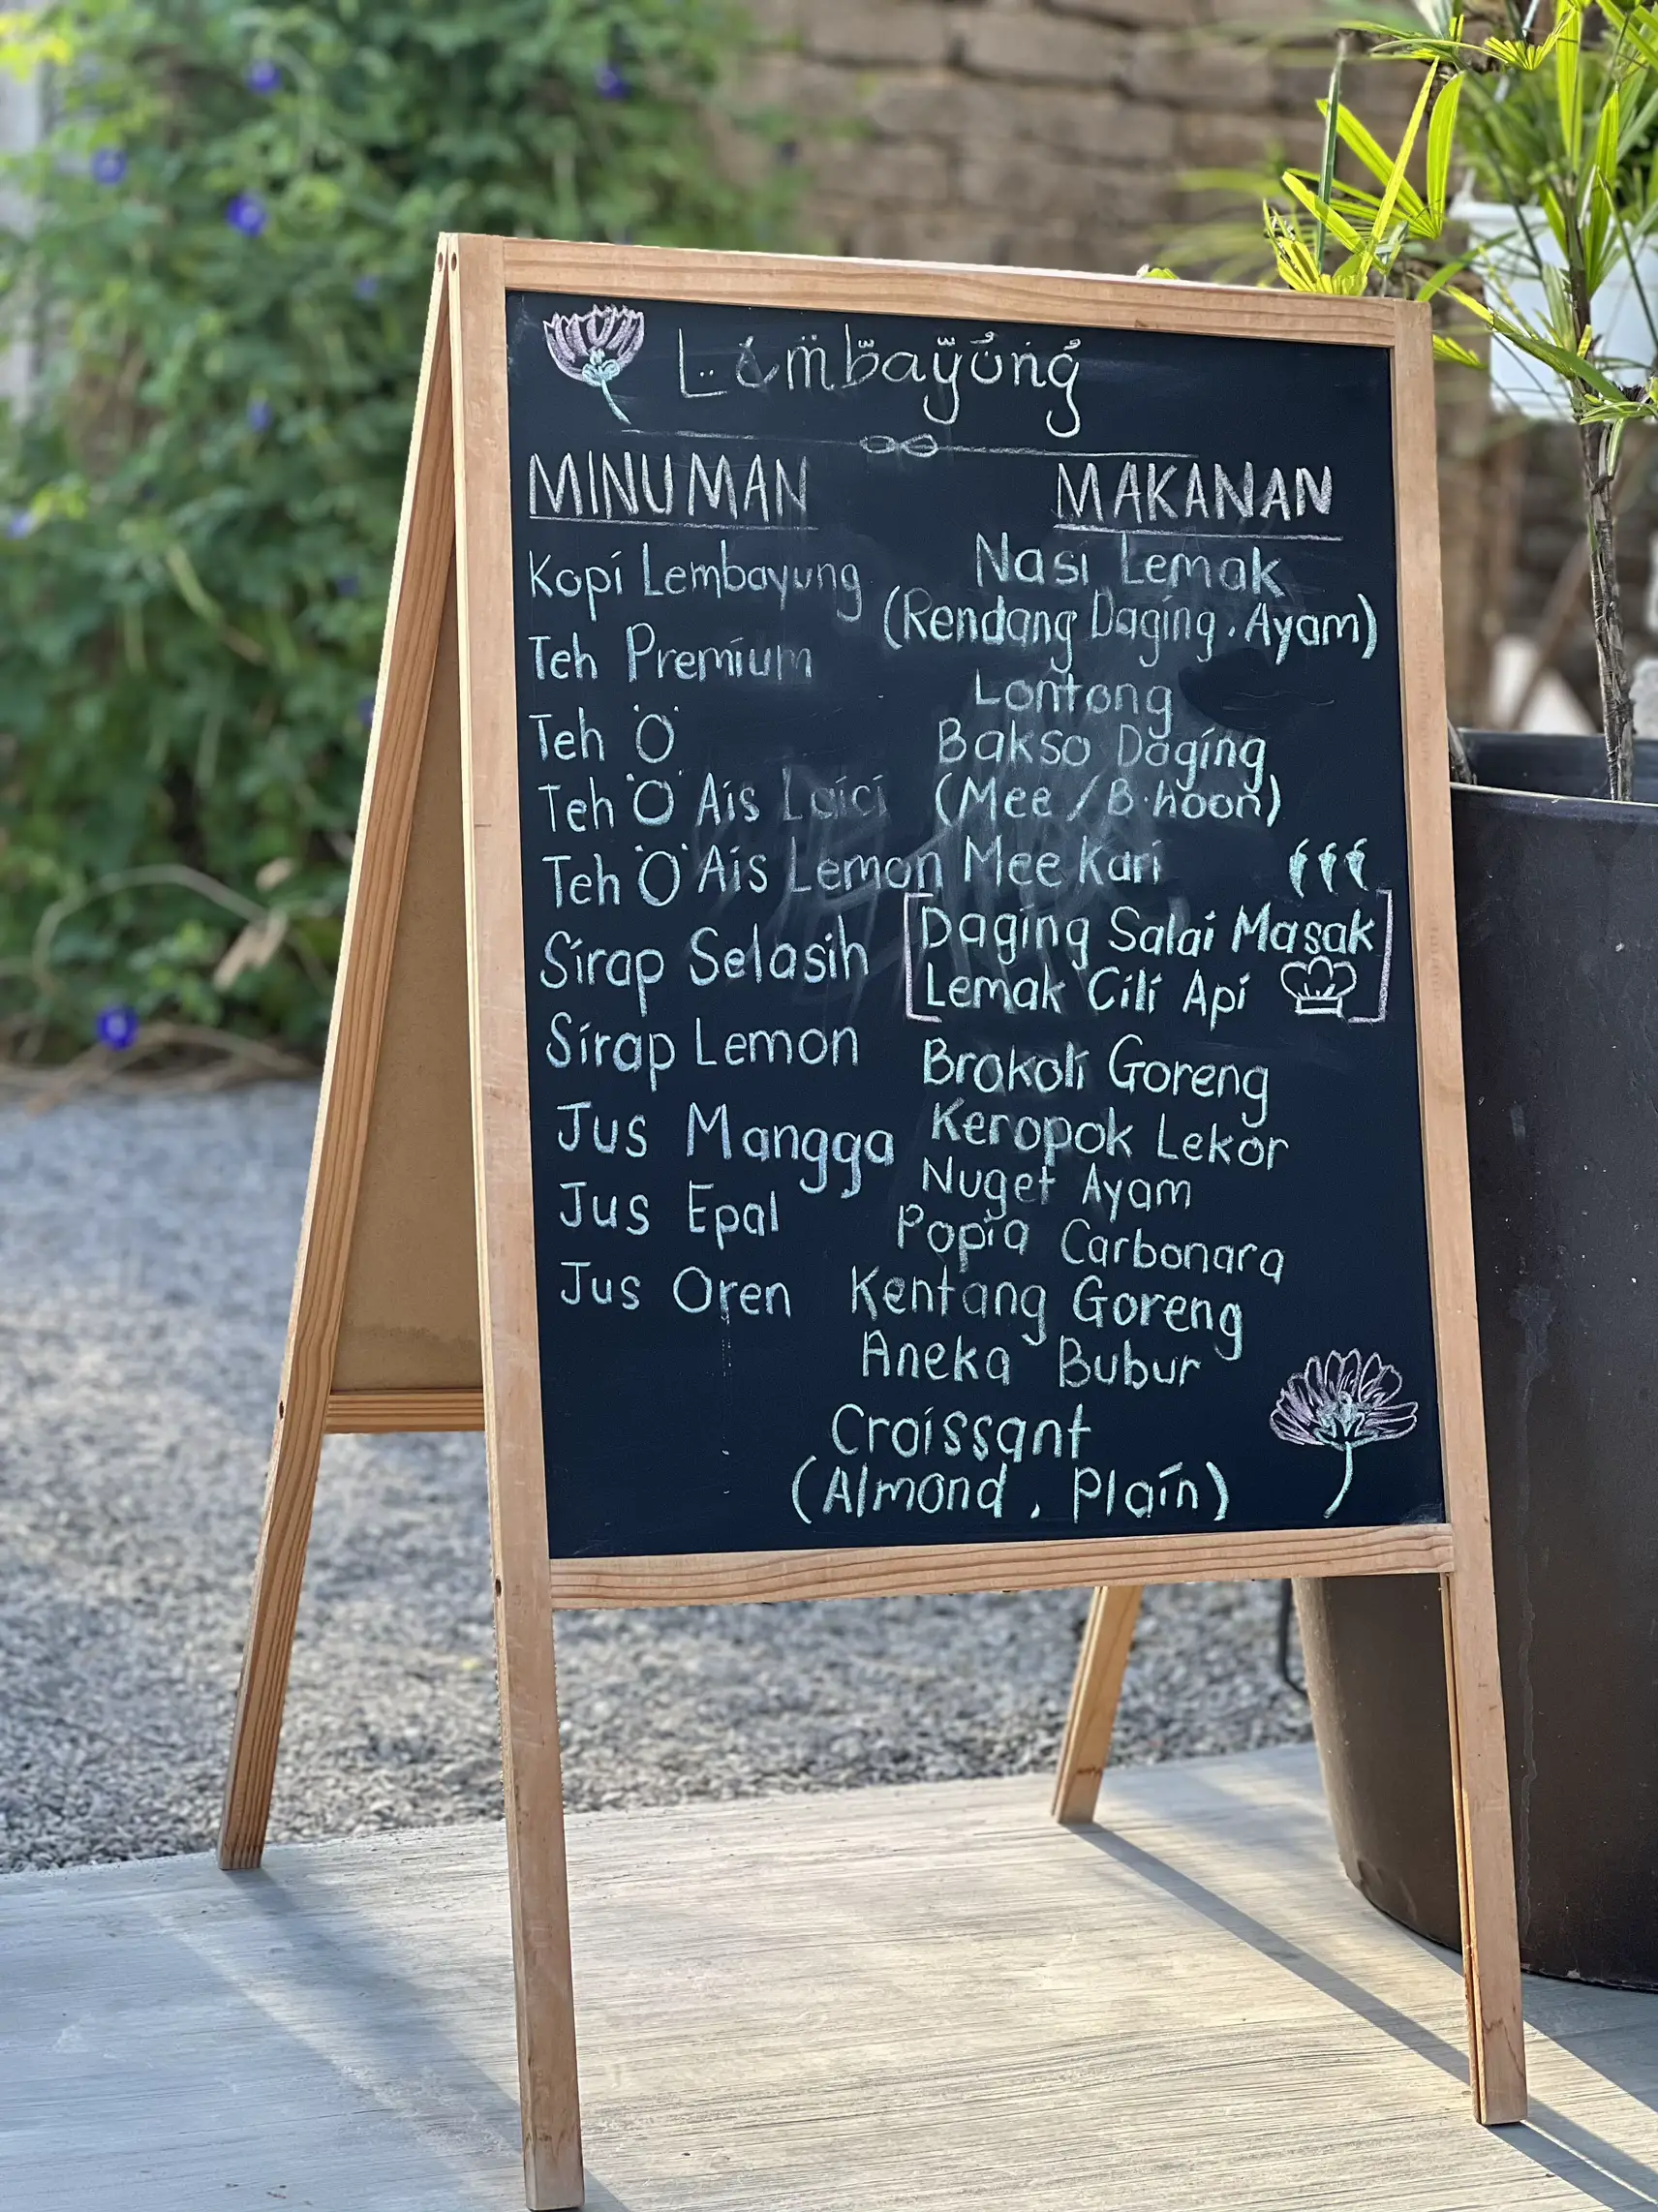 Lembayung
MINUMAN
Kopi Lembayung
Teh Premium
Teh 'O'
Teh 'O' Ais Laici
Teh 'O' Ais Lemon
Sirap Selasih
Sirap Lemon
Jus Mangga
Jus Epal
Jus Oren
MAKANAN
Nasi Lemak
(Rendang Daging, Ayam)
Lontong
Bakso Daging
(Mee / B.hoon)
Mee Kari
[Daging Salai Masak
Lemak Cili Api]
Brokoli Goreng
Keropok Lekor
Nuget Ayam
Popia Carbonara
Kentang Goreng
Aneka Bubur
Croissant
(Almond, Plain)